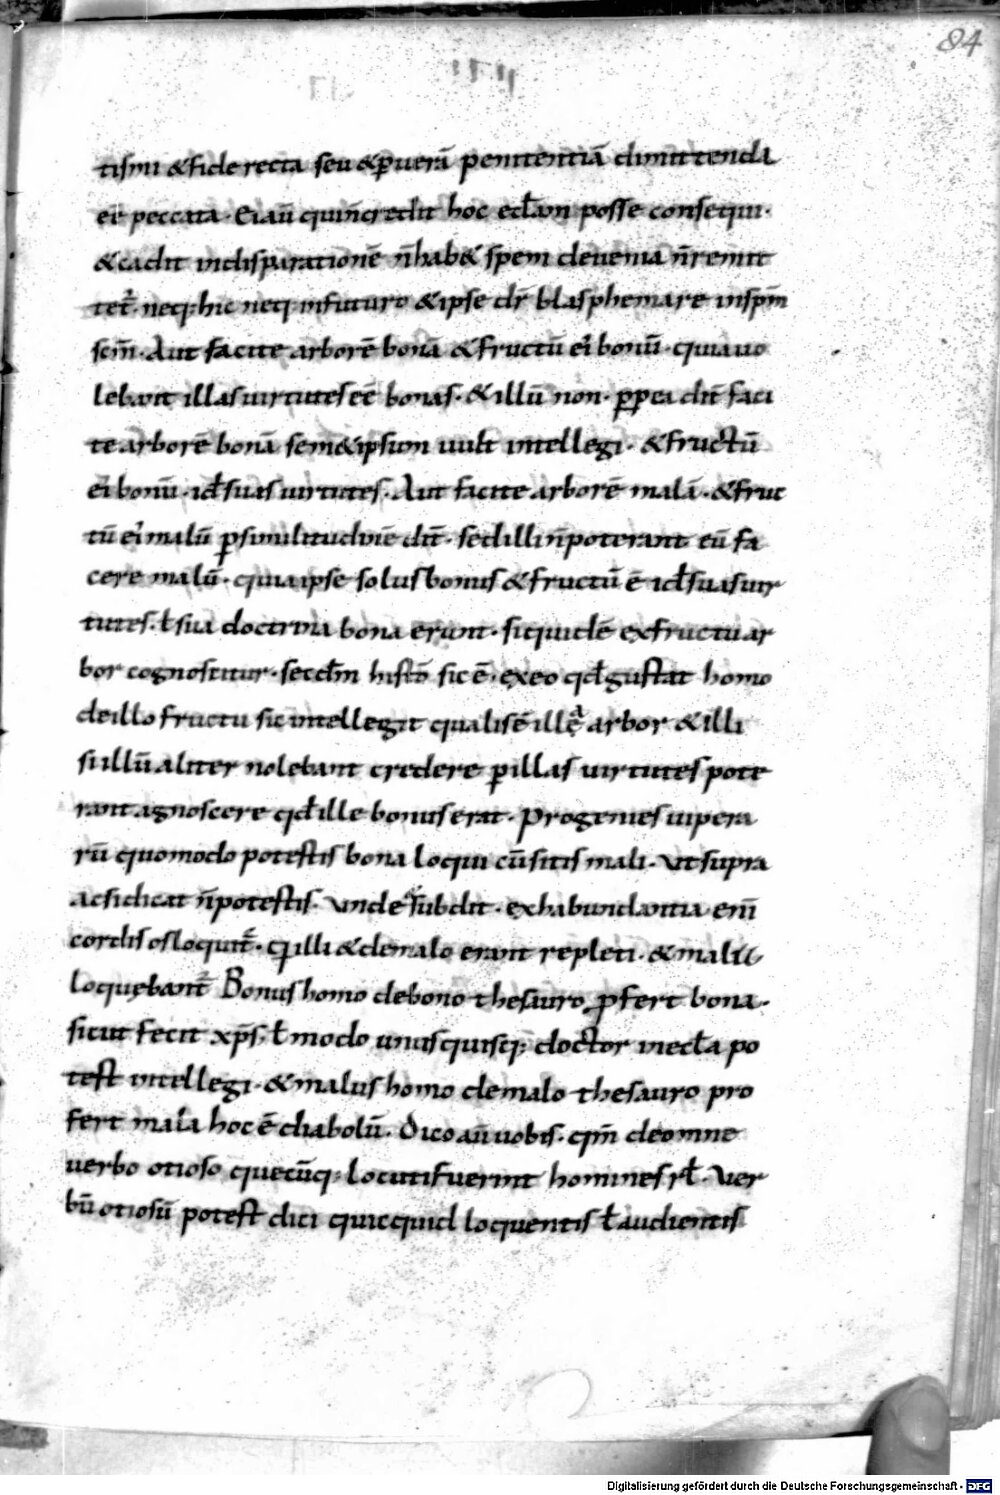 84
tismi &fide recta seu &ꝑuerā penitentiā dimittenda
ei peccata. Ei aū qui n̄ credit hoc eccłam posse consequi.
&cadit indisparationē n̄hab& spem deuenia n̄remit
tet̄. neq; hic neq; infuturo &ipse dr̄ blasphemare inspm̄
scm̄. Aut facite arborē bonā &fructū ei bonū. quia uo
lebant illas uirtutes eē bonas. &illū non. ꝓpea dīt faci
te arborē bonā sem&ipsum uult intellegi. &fructū
ei bonū. id suas uirtutes. Aut facite arborē malā. &fruc
tū ei malū ꝑsimilitudinē dīt. sed illi n̄poterant eū fa
cere malū. quia ipse solus bonus &fructū ē id suas uir
tutes. ł sua doctrina bona erunt. siquidē exfructu ar
bor cognoscitur. secdm̄ histō sic ē. exeo qđ gustat homo
deillo fructu sic intellegit qualis ē illę arbor &illi
siillū aliter nolebant credere ꝑillas uirtutes pote
rant agnoscere qđ ille bonus erat. Progenies uipera
rū quomodo potestis bona loqui cū sitis mali. Ut supra
acsi dicat n̄potestis. Unde & subdit. exhabundantia enī
cordis os loquit̄. q illi &demalo erant repleti. &mali
loquębant̄ Bonus homo debono thesauro ꝓfert bona.
sicut fecit xp̄s; ł modo unusquisq; doctor ineccła po
test intellegi. &malus homo demalo thesauro pro
fert mala hoc ē diabolū. Dico aū uobis. qm̄ deomne
uerbo otioso quecūq; locuti fuerint homines rł. Uer
bū otiosū potest dici quicquid loquentis ł audientis
Digitalisierung gefördert durch die Deutsche Forschungsgemeinschaft - DFG